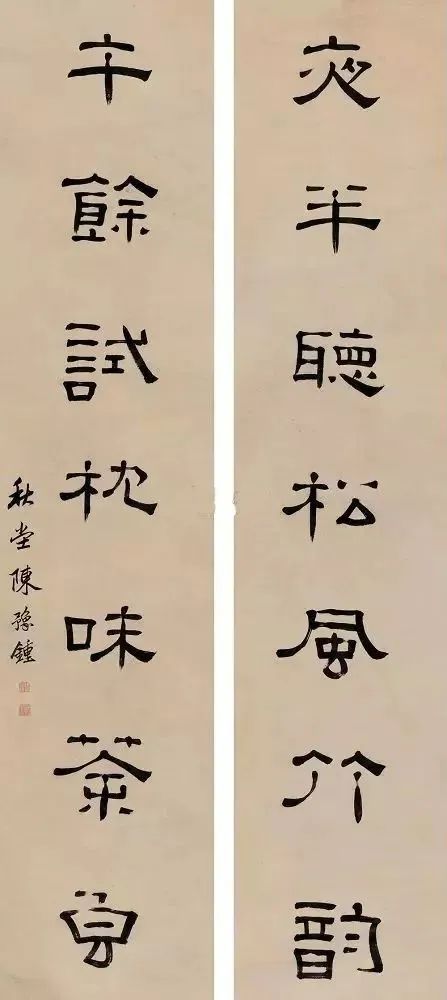 夜半聽松風竹韵
午餘試枕味茶
秋堂陳豫鍾